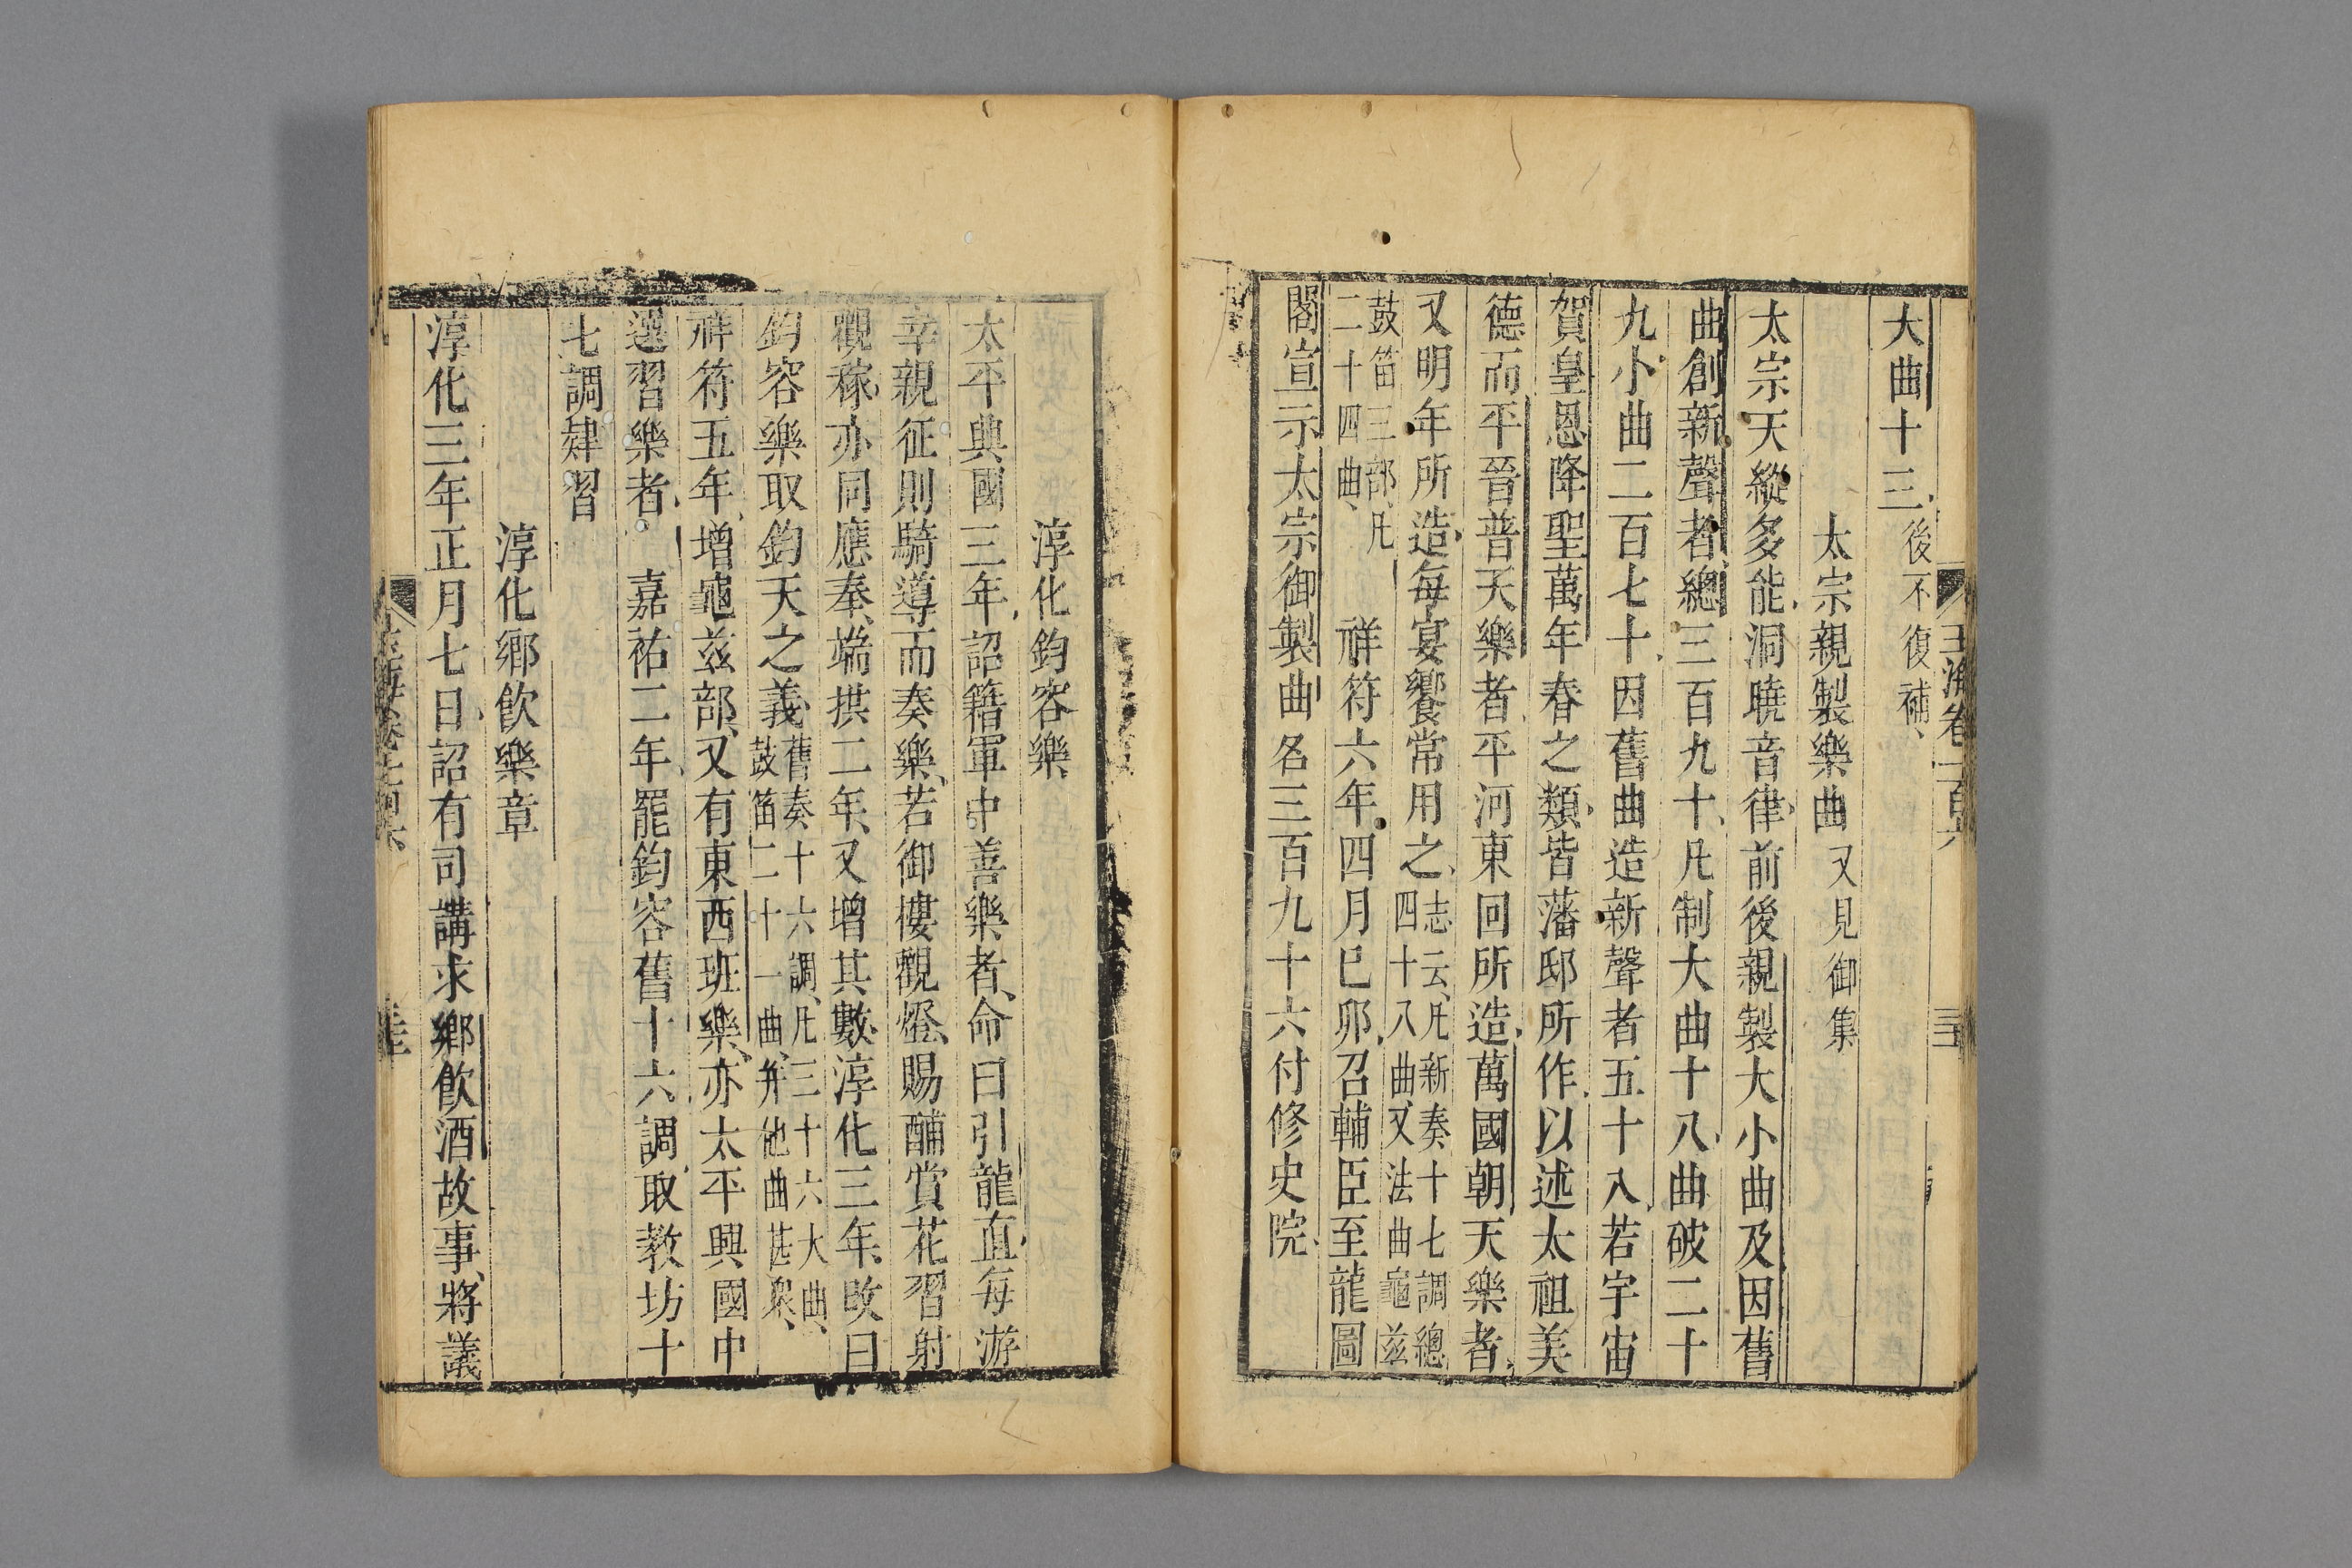 大曲十三後不復補
太宗親製樂曲又見御集
太宗天縱多能洞曉音律前後親製大小曲及因舊
曲創新聲者總三百九十凡制大曲十八曲破二十
九小曲二百七十因舊曲造新聲者五十八若宇宙
賀皇恩降聖萬年春之類皆藩邸所作以述太祖美
德而平晉普天樂者平河東回所造萬國朝天樂者
又明年所造每宴饗常用之志云凡新奏十七調總
四十八曲又法曲龜茲
鼓笛三部凡
二十四曲
祥符六年四月巳卯召輔臣至龍圖
閣宣示太宗御製曲名三百九十六付修史院
淳化鈞容樂
太平興國三年詔籍軍中善樂者命曰引龍直每游
幸親征則騎導而奏樂若御樓觀燈賜酺賞花習射
觀稼亦同應奉端拱二年又增其數淳化三年改曰
鈞容樂取鈞天之義舊奏十六調凡三十六大曲
鼓笛二十一曲并他曲甚衆
祥符五年增龜茲部又有東西班樂亦太平興國中
選習樂者 嘉祐二年罷鈞容舊十六調取教坊十
七調肄習
淳化鄉飲樂章
淳化三年正月七日詔有司講求鄉飲酒故事將議